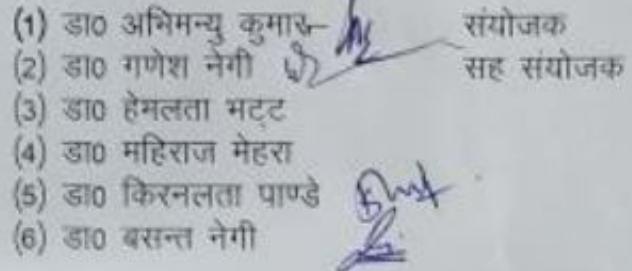 (1) डा0 अभिमन्यु कुमार- संयोजक
(2) डा0 गणेश नेगी सह संयोजक
(3) डा0 हेमलता भट्ट
(4) डा0 महिराज मेहरा
(5) डा0 किरनलता पाण्डे
(6) डा0 बसन्त नेगी